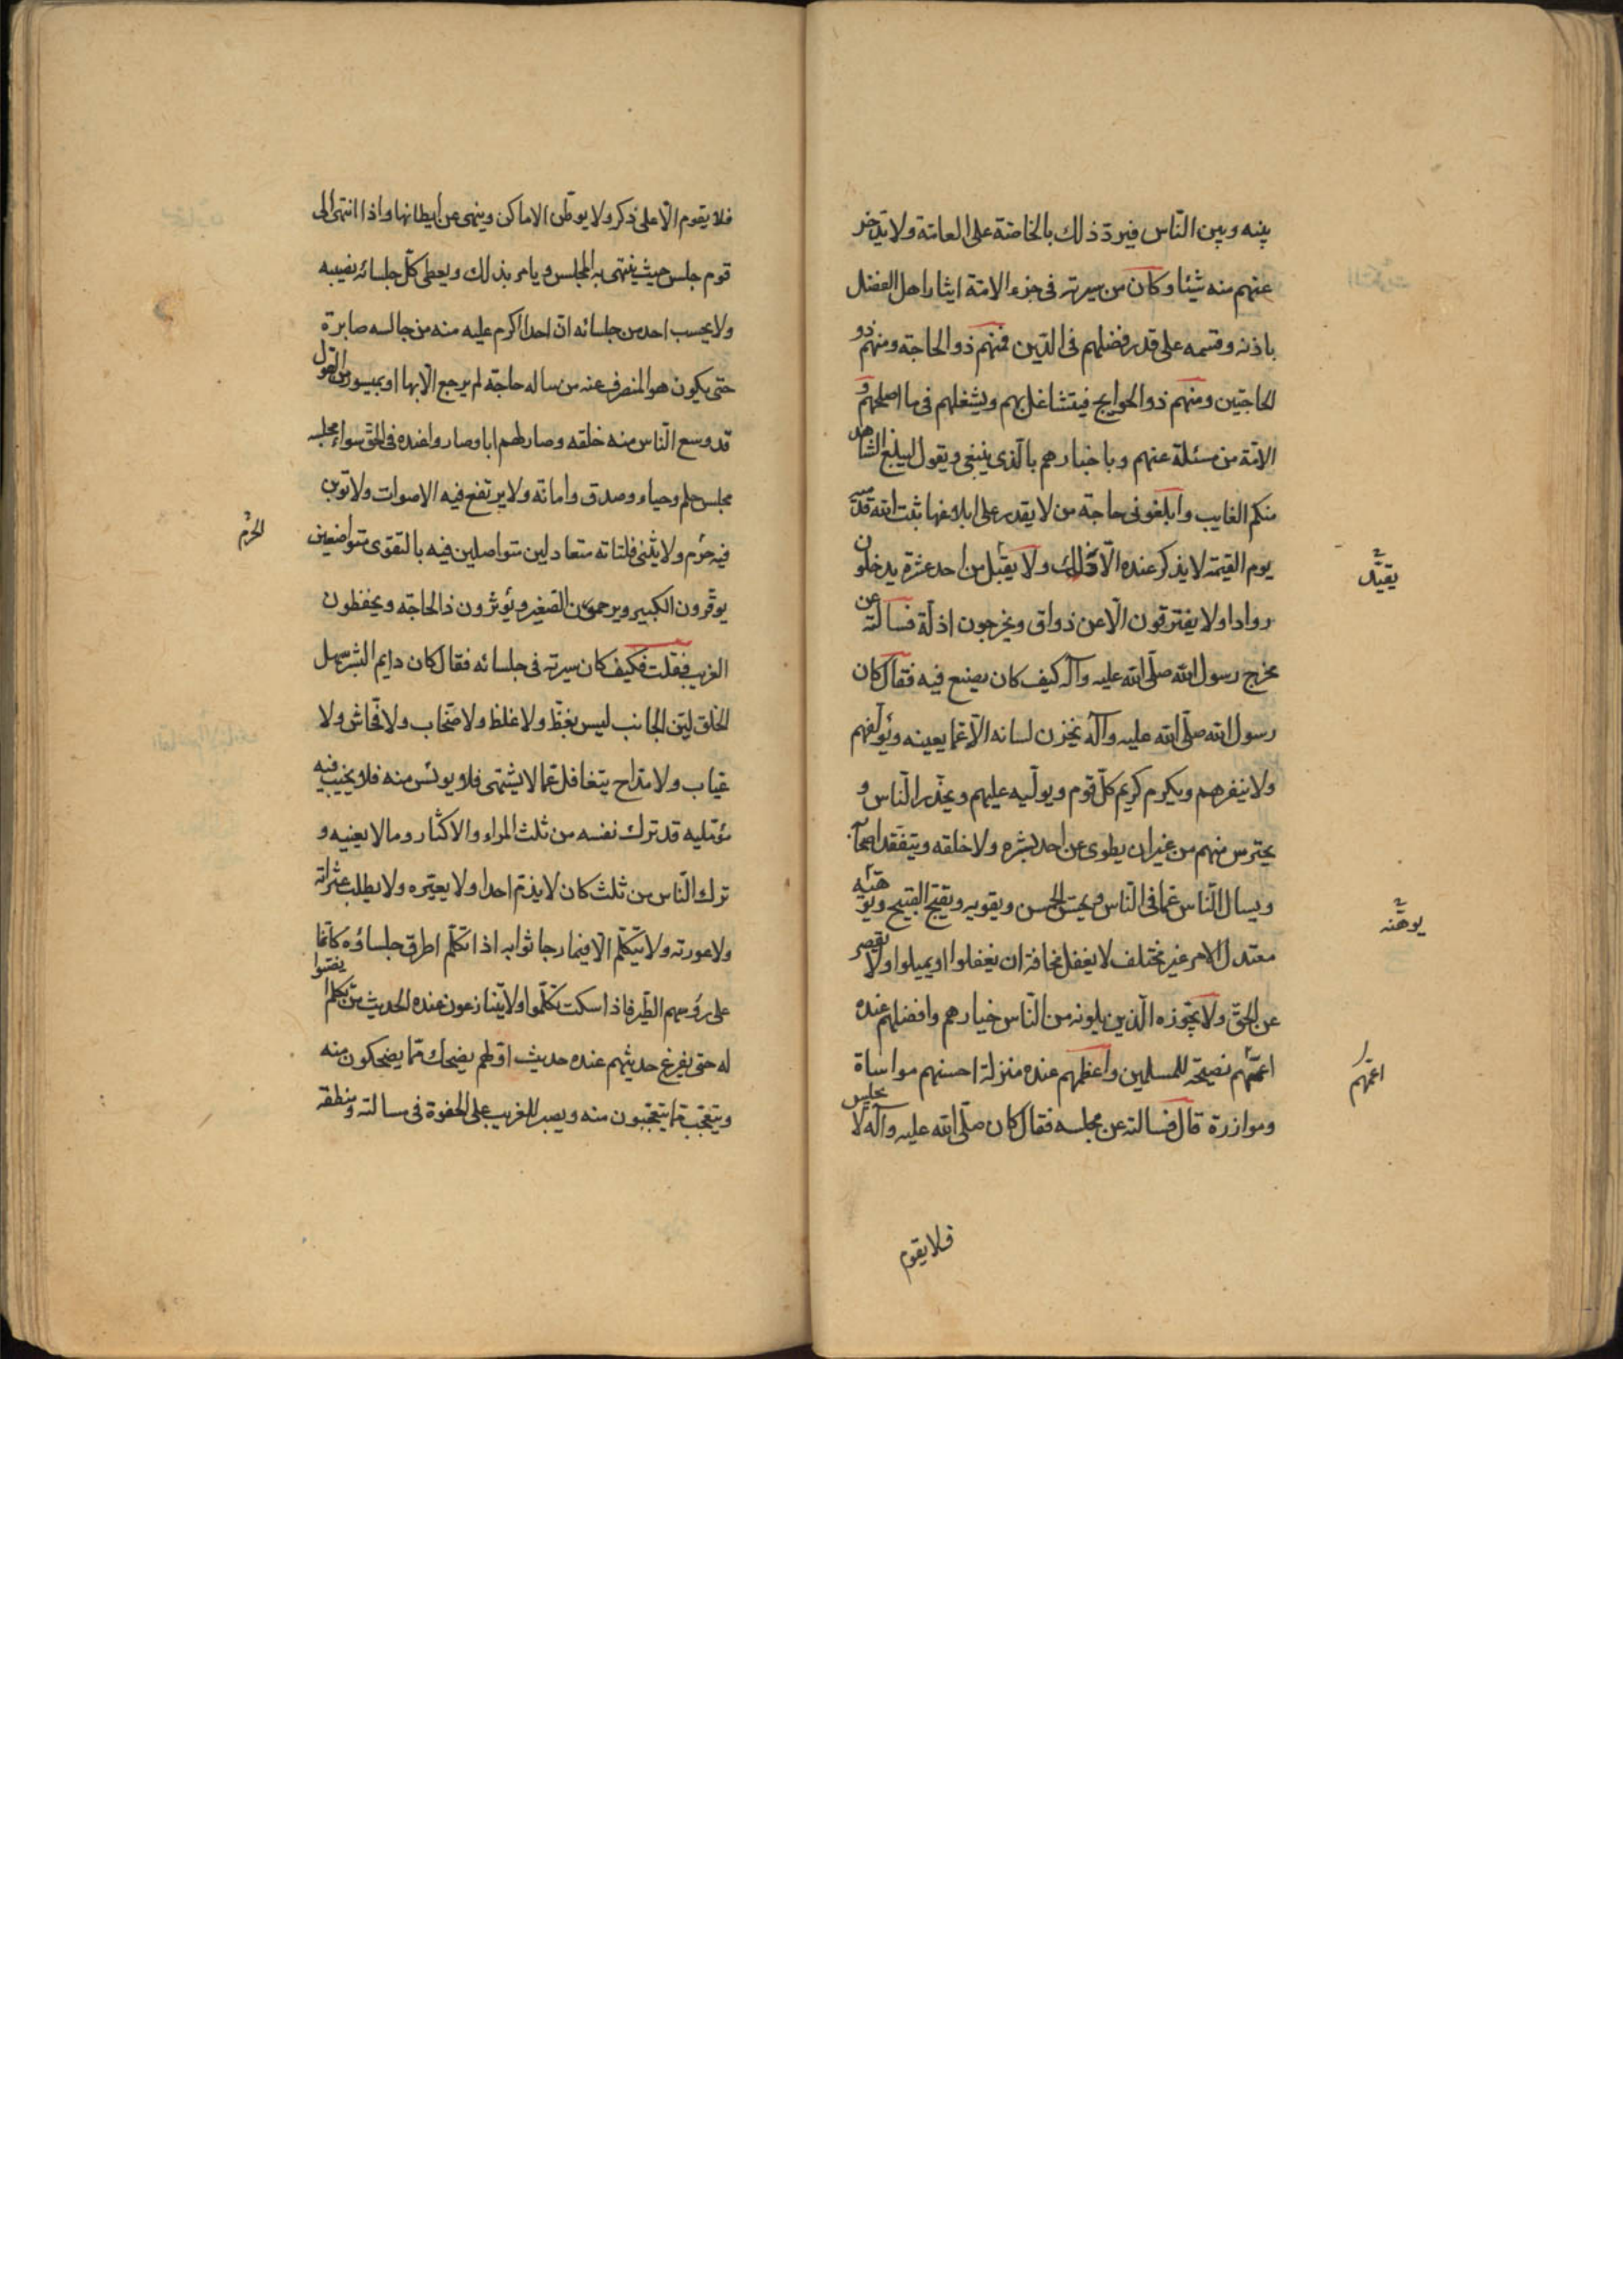 بينه وبين النّاس فيردّ ذلك بالخاصّة على العامّة ولا يدّخر
عنهم منه شيئا وكان من سيرته فى جزء الامّة ايثار اهل الفضل
باذنه وقسمه على قدر فضلهم فى الدّين فمنهم ذو الحاجة ومنهم ذو
الحاجتين ومنهم ذو الحوايج فيتشاغل بهم ويشغلهم فى ما اصلحهم و
الامّة من مسئلة عنهم وباخبارهم بالّذى ينبغى ويقول ليبلغ الشاهد
منكم الغايب وابلغونى حاجة من لا يقدر على ابلاغها ثبت الله قدميه
يوم القيمة لا يذكر عنده الّا ذلك ولا يقبل من احد عثرة يدخلون
روادا ولا يفترقون الّا عن ذواق ويخرجون اذلّة فسالته عن
مخرج رسول الله صلّى الله عليه وآله كيف كان يصنع فيه فقال كان
رسول الله صلّى الله عليه وآله يخزن لسانه الّا عمّا يعينه ويؤلّفهم
ولا ينفرهم ويكرم كريم كلّ قوم ويولّيه عليهم ويحذّر النّاس و
يحترس منهم من غير ان يطوى عن احد بشره ولا خلقه ويتفقّد اصحابه
ويسال النّاس عمّا فى النّاس ويحسّن الحسن ويقويه ويقبّح القبيح ويوهّنه
معتدل الامر غير مختلف لا يغفل مخافة ان يغفلوا او يميلوا ولا يقصر
عن الحقّ ولا يجوزه الّذين يلونه من النّاس خيارهم وافضلهم عنده
اعمّهم نصيحة للمسلمين واعظمهم عنده منزلة احسنهم مواساة
وموازرة قال فسالته عن مجلسه فقال كان صلّى الله عليه وآله لا يجلس
فلا يقوم
يقيّد
يوهّنه
اعمّهم
فلا يقوم الّا على ذكر ولا يوطّن الاماكن وينهى عن ايطانها واذا انتهى الى
قوم جلس حيث ينتهى به المجلس ويامر بذلك ويعطى كلّ جلسائه نصيبه
ولا يحسب احد من جلسائه انّ احدا اكرم عليه منه من جالسه صابره
حتى يكون هو المنصرف عنه من ساله حاجة لم يرجع الّا بها او بميسور من القول
قد وسع النّاس منه خلقه وصار لهم ابا وصاروا عنده فى الحقّ سواء مجلسه
مجلس حلم وحياء وصدق وامانة ولا يرتفع فيه الاصوات ولا توبن
فيه حرم ولا يثنى فلتاته متعادلين متواصلين فيه بالتقوى متواضعين
يوقّرون الكبير ويرحمون الصّغير ويؤثرون ذا الحاجه ويحفظون
الغريب فقلت فكيف كان سيرته فى جلسائه فقال كان دايم البشر سهل
الخلق ليّن الجانب ليس بفظّ ولا غلظ ولا صخّاب ولا فحّاش ولا
عيّاب ولا مدّاح يتغافل عمّا لا يشتهى فلا يؤئس منه فلا يخيب فيه
مؤمّليه قد ترك نفسه من ثلث المراء والاكثار وما لا يعنيه و
ترك النّاس من ثلث كان لا يذمّ احدا ولا يعيّره ولا يطلب عثراته
ولا عورته ولا يتكلّم الّا فيما رجا ثوابه اذا تكلّم اطرق جلساؤه كانّما
على رؤسهم الطّير فاذا سكت تكلّموا ولا يتنازعون عنده الحديث من تكلّم انصتوا
له حتى يفرغ حديثهم عنده حديث اوّلهم يضحك ممّا يضحكون منه
ويتعجّب ممّا يتعجّبون منه ويصبر للغريب على الجفوة فى مسالته ومنطقه
الحرم